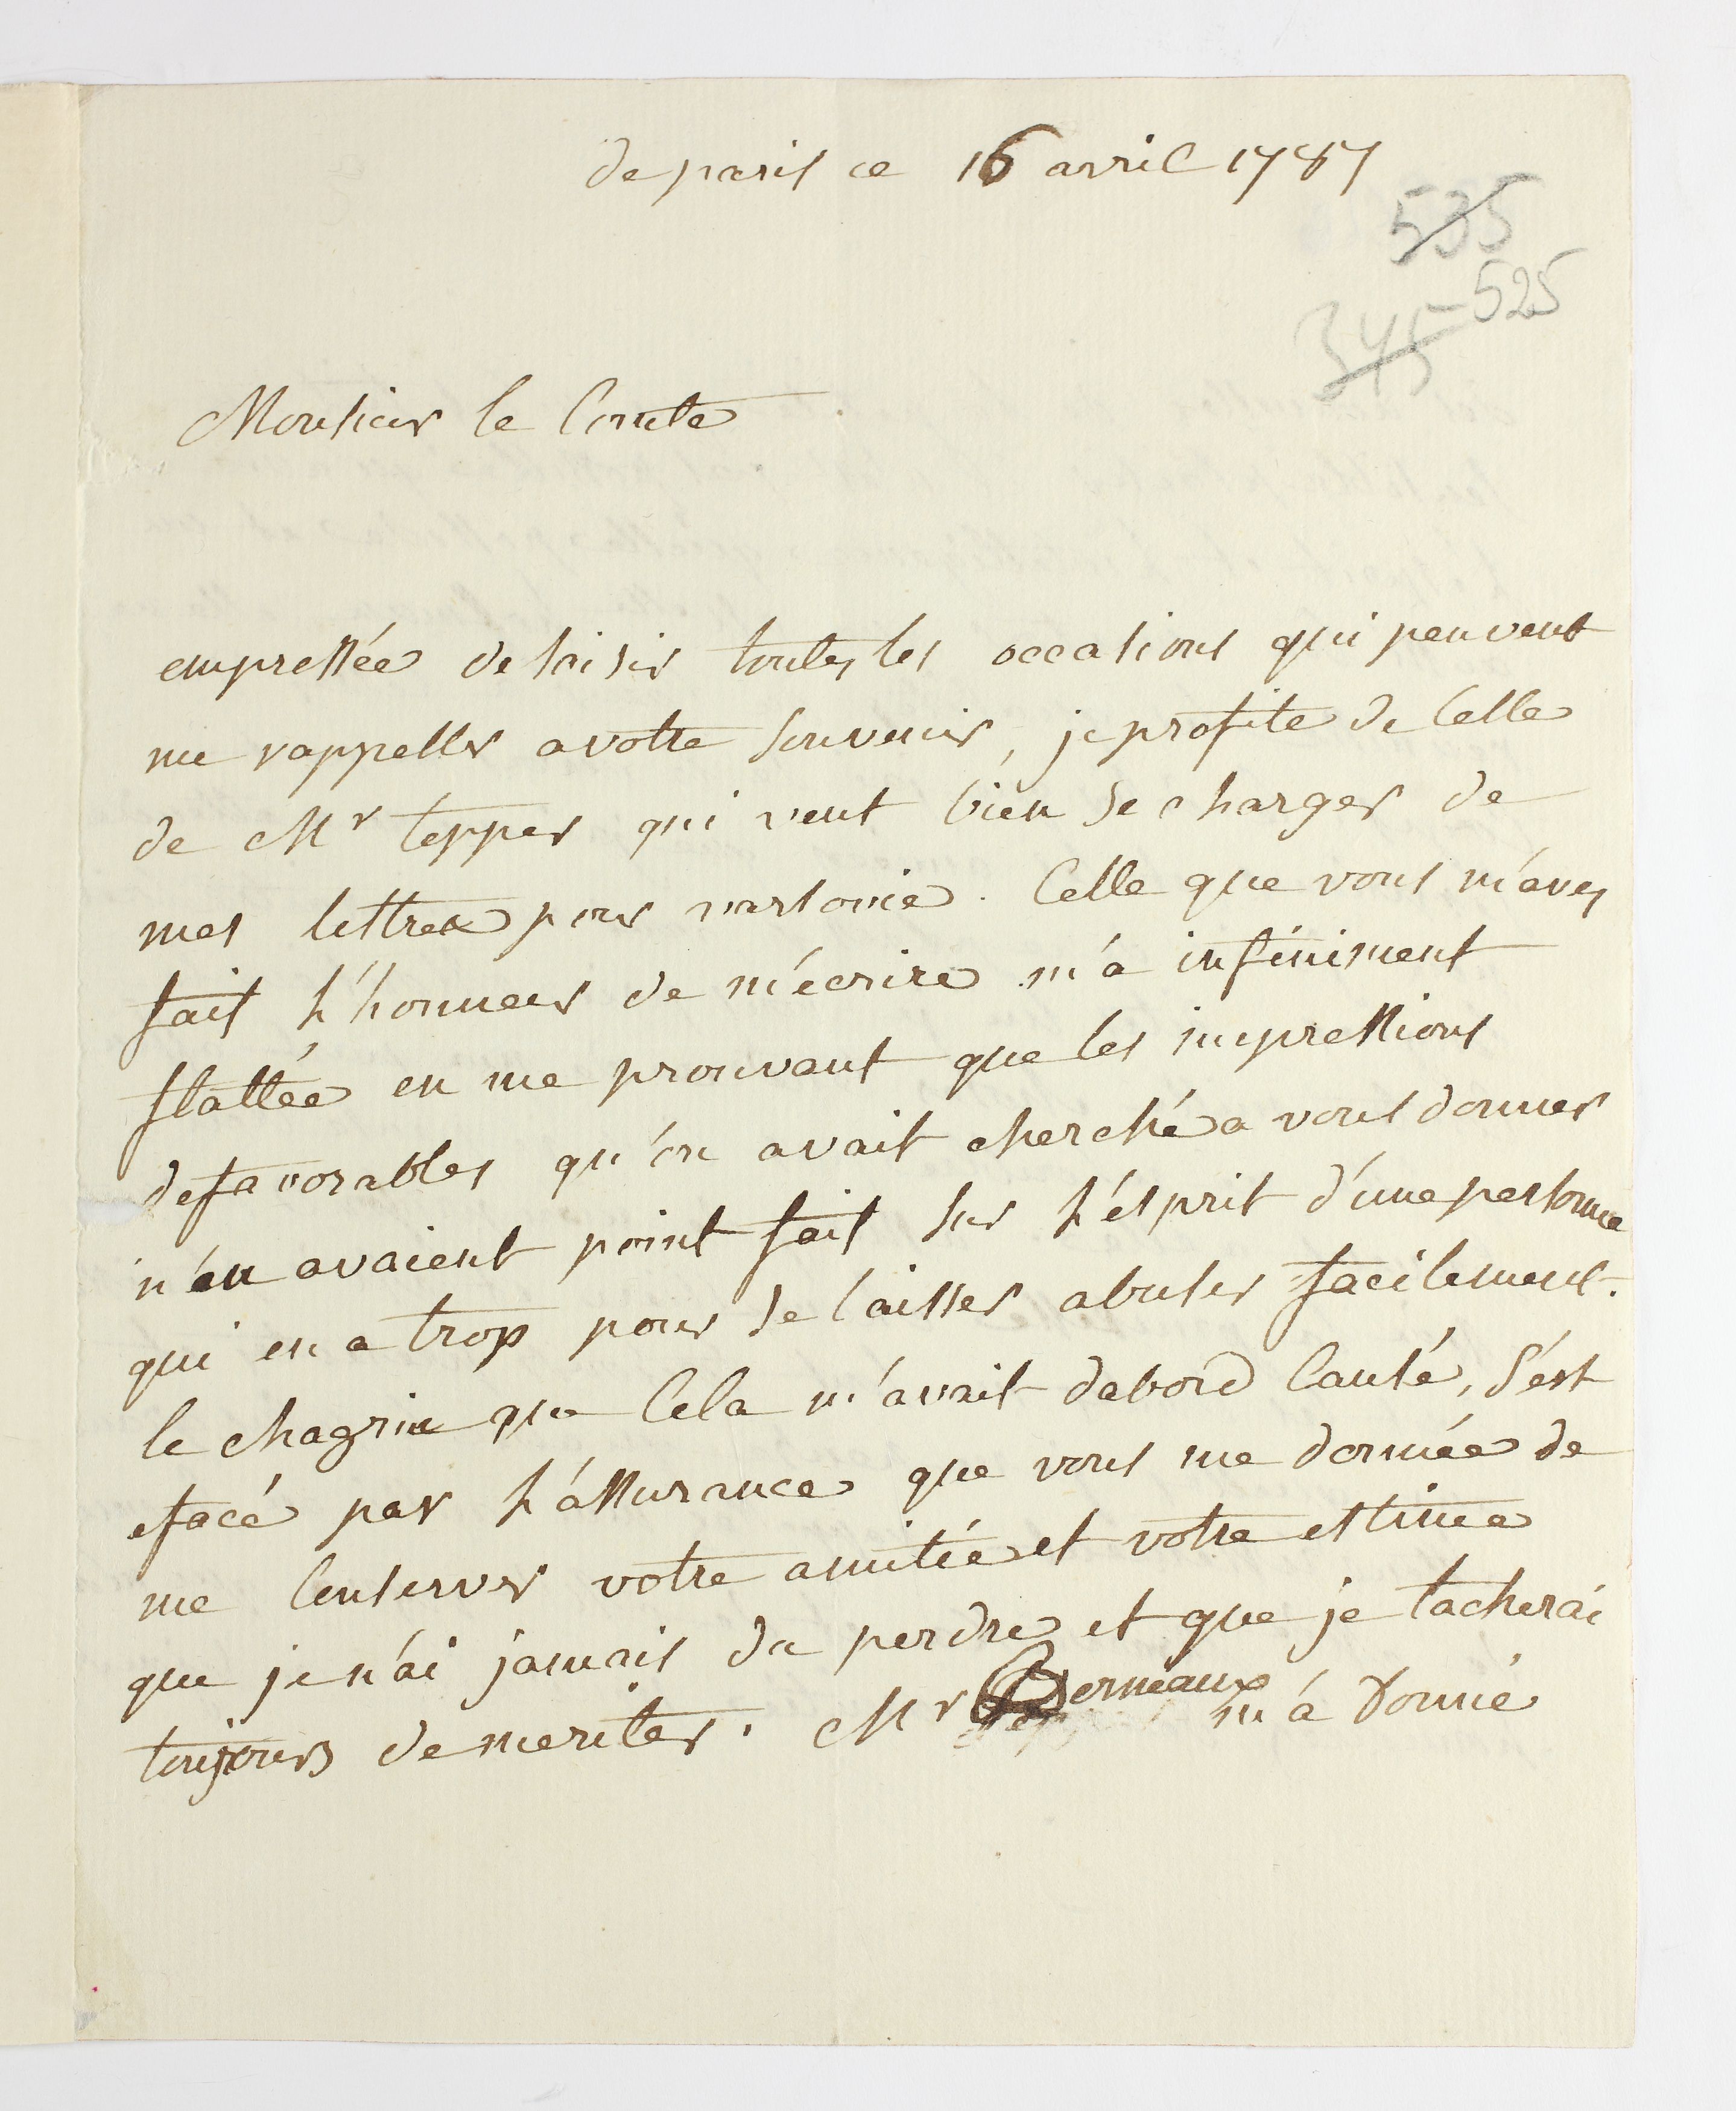 de paris ce 16 avril 1787
535
525
345
Monsieur le Comte
empressée de saisir toutes les occasions qui peuvent
me rappeller a votre souvenir, je profite de Celle
de Mr tepper qui veut bien se charger de
mes lettres pour varsovie. Celle que vous m'avez
fait l'honneur de m'écrire m'a infiniment
flattée en me prouvant que les impressions
defavorables qu'on avait cherché a vous donner
n'en avaient point fait sur l'ésprit d'une personne
qui en a trop pour se laisser abuser facilement.
le chagrin que Cela m'avait dabord Causé, s'ést
efacé par l'assurance que vous me donnée de
me Conserver votre amitié et votre estime
que je n'ai jamais du perdre et que je tacherai
toujours de meriter. Mr Derneaux m'a donné